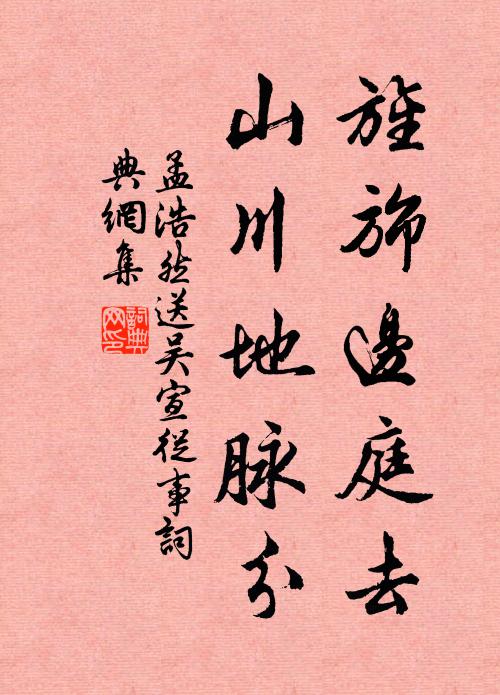 旌旆邊庭去
山川地脉分
孟浩然送吴宣從事詞
典網集
詞典
网印